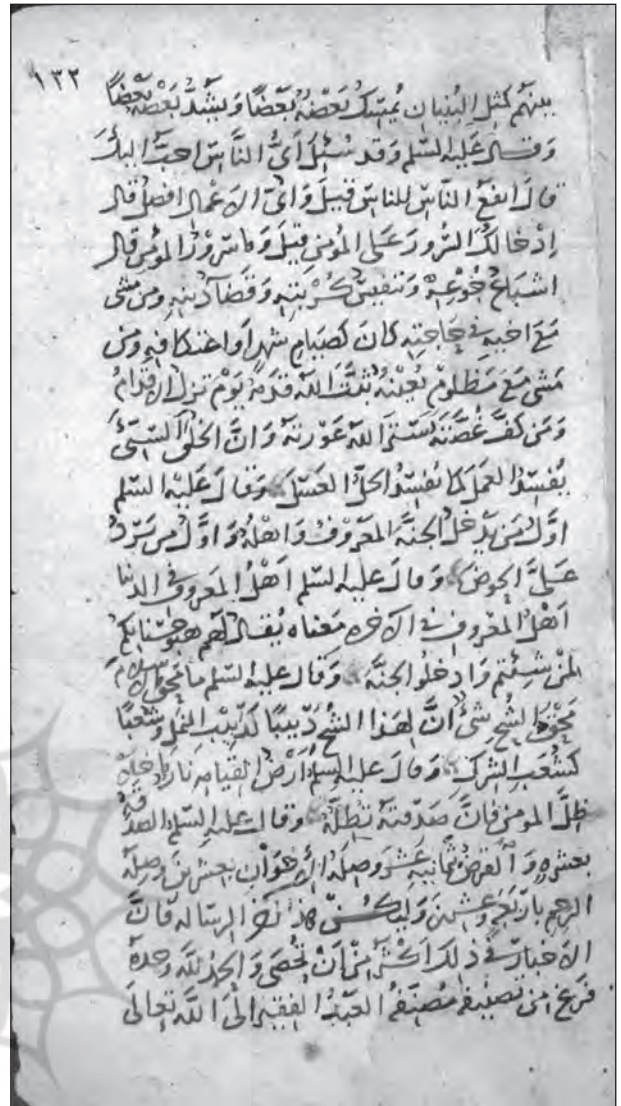 ١٣٢
بينهم كمثل البنيان يمسك بعضه بعضًا ويشد بعضه بعضًا
وقال عليه السلم وقد سئل أي الناس احب اليك
قال انفع الناس للناس قيل وأي الاعمال افضل قال
إدخالك السرور على المؤمن قيل وما سرور المؤمن قال
اشباع جوعه وتنفيس كربته وقضآ دينه ومن مشى
مع اخيه في حاجته كان كصيام شهر أو اعتكافه ومن
مشى مع مظلوم يعينه ثبت الله قدمه يوم تزل الاقدام
ومن كف غضبه ستر الله عورته وان الخلق السيّئ
يفسد العمل كما يفسد الخل العسل وقال عليه السلم
اول من يدخل الجنة المعروف وأهله واول من يرد
علىّ الحوض وقال عليه السلم اهل المعروف في الدنيا
اهل المعروف في الاخره معناه يقال لهم هبو حسناتكم
لمن شئتم وادخلوا الجنة وقال عليه السلم ما محق الاسلام
محق الشح شئ ان لهذا الشح دبيبًا كدبيب النمل وشعبًا
كشعب الشرك وقال عليه السلم أرض القيامه نار ما خلا
ظل المومن فان صدقته تظله وقال عليه السلم الصدقة
بعشره والقرض بثمانيه عشر وصله الإخوان بعشرين وصله
الرحم باربع وعشرين وليكن هذا اخر الرساله فان
الاخبار في ذلك اكثر من أن تحصى والحمد لله وحده
فرغ من تصنيفه مصنفه العبد الفقير الى الله تعالى